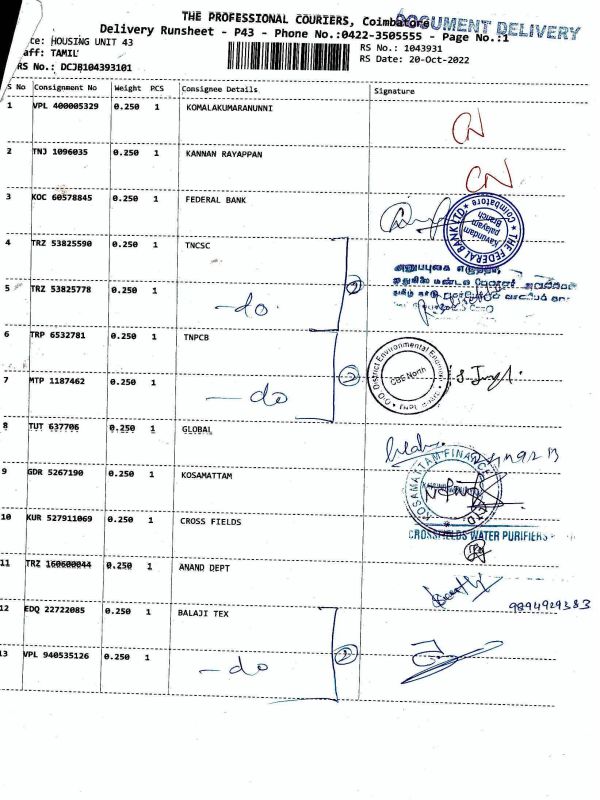 THE PROFESSIONAL COURIERS, Coimbatore
DOCUMENT DELIVERY
Delivery Runsheet - P43 - Phone No.:0422-3505555 - Page No.:1
te: HOUSING UNIT 43
RS No.: 1043931
aff: TAMIL
RS Date: 20-Oct-2022
RS No.: DCJB104393101
S No Consignment No Weight PCS Consignee Details Signature
1 VPL 400005329 0.250 1 KOMALAKUMARANUNNI
CN
2 TNJ 1096035 0.250 1 KANNAN RAYAPPAN
CN
3 KOC 60578845 0.250 1 FEDERAL BANK
THE FEDERAL BANK LTD. Coimbatore
Kavundam palayam Branch
4 TRZ 53825590 0.250 1 TNCSC
5 TRZ 53825778 0.250 1 -do 2
6 TRP 6532781 0.250 1 TNPCB
District Environmental Engineer
CBE North
7 MTP 1187462 0.250 1 -do 2
8 TUT 637706 0.250 1 GLOBAL
9 GDR 5267190 0.250 1 KOSAMATTAM
KOSAMATTAM FINANCE LTD.
10 KUR 527911069 0.250 1 CROSS FIELDS
CROSSFIELDS WATER PURIFIERS
11 TRZ 160600044 0.250 1 ANAND DEPT
9894929383
12 EDQ 22722085 0.250 1 BALAJI TEX
13 VPL 940535126 0.250 1 -do 2